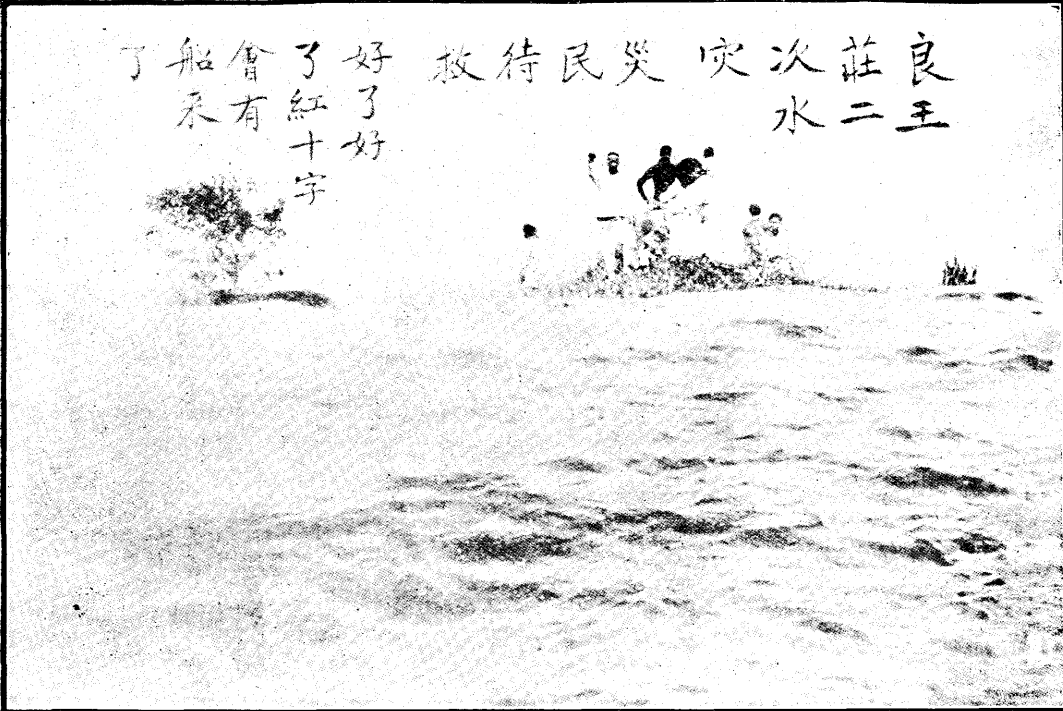 良王
莊二
次水
灾
災
民
待
救
好了好
了紅十字
會有
船来
了